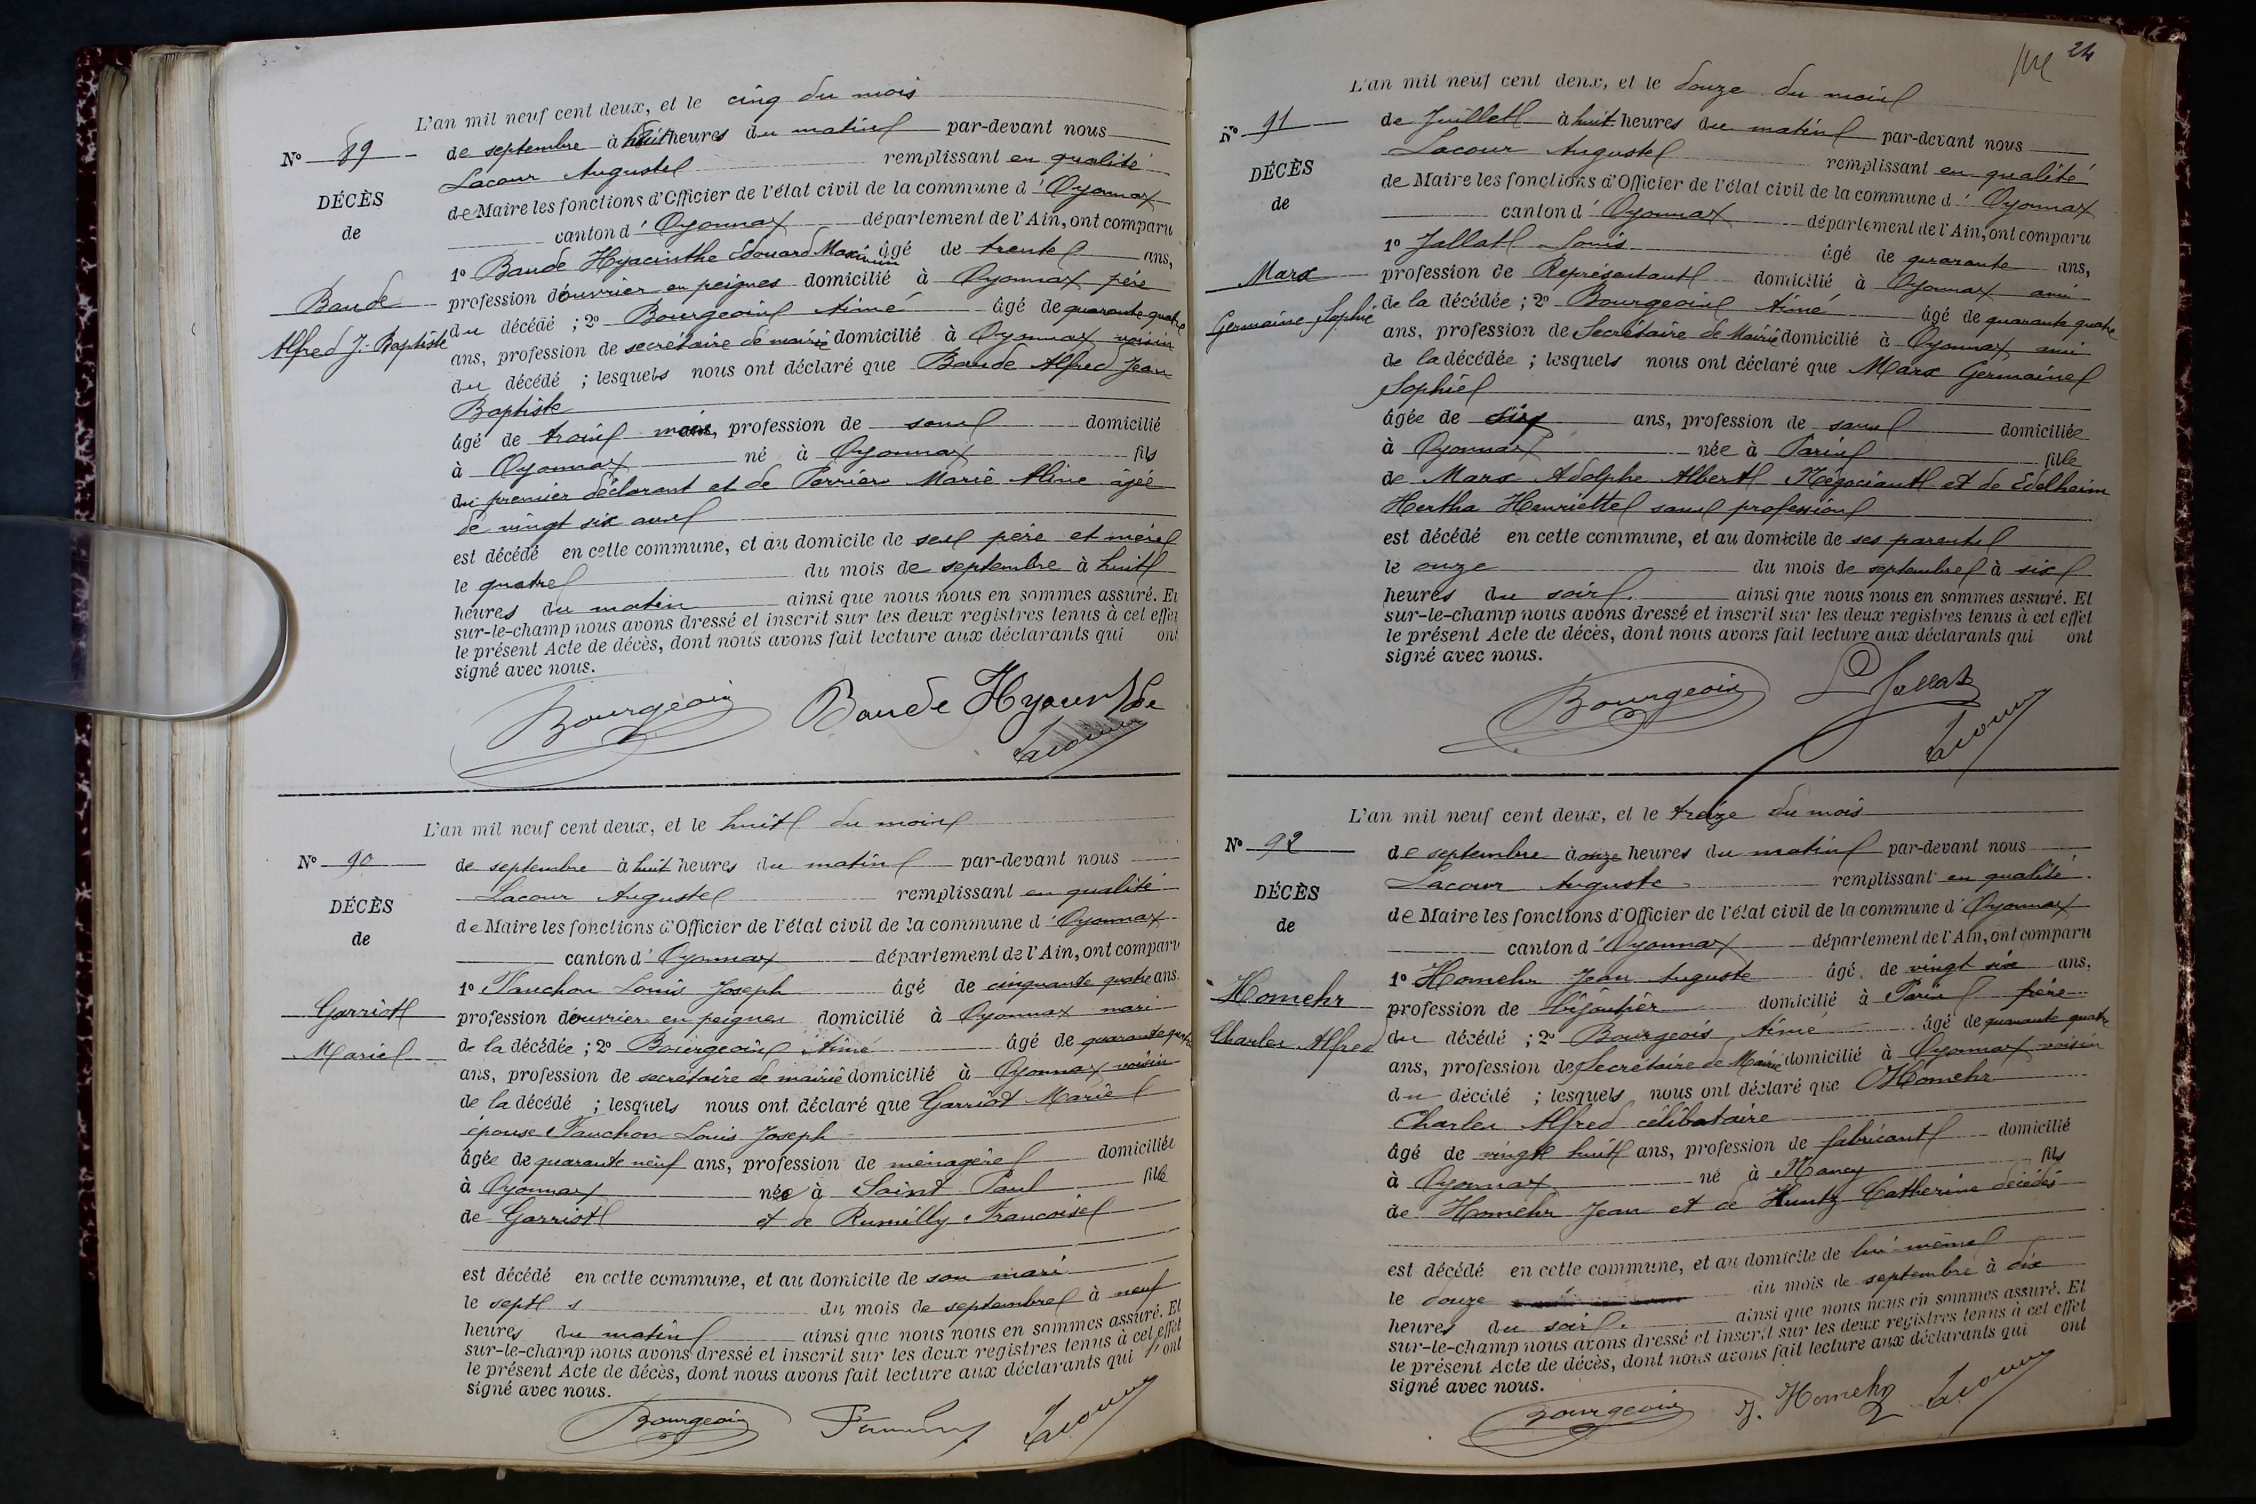 L'an mil neuf cent deux, et le cinq du mois
de septembre à huit heures du matin par-devant nous
Lacour Auguste remplissant en qualité
de Maire les fonctions d'Officier de l'état civil de la commune d'Oyonnax
canton d'Oyonnax département de l'Ain, ont comparu
1° Baude Hyacinthe Edouard Maximin âgé de trente ans,
profession d'ouvrier en peignes domicilié à Oyonnax père
du décédé ; 2° Bourgeois Aimé âgé de quarante quatre
ans, profession de secrétaire de mairie domicilié à Oyonnax voisin
du décédé ; lesquels nous ont déclaré que Baude Alfred Jean
Baptiste
âgé de trois mois, profession de sans domicilié
à Oyonnax né à Oyonnax fils
du premier déclarant et de Perrier Marie Aline âgée
de vingt six ans
est décédé en cette commune, et au domicile de ses père et mère
le quatre du mois de septembre à huit
heures du matin ainsi que nous nous en sommes assuré. Et
sur-le-champ nous avons dressé et inscrit sur les deux registres tenus à cet effet
le présent Acte de décès, dont nous avons fait lecture aux déclarants qui ont
signé avec nous.
N° 89
DÉCÈS
de
Baude
Alfred J. Baptiste
Bourgeois Baude Hyacinthe
Lacour
L'an mil neuf cent deux, et le huit du mois
N° 90
DÉCÈS
de
Garriot
Marie
de septembre à huit heures du matin par-devant nous
Lacour Auguste remplissant en qualité
de Maire les fonctions d'Officier de l'état civil de la commune d'Oyonnax
canton d'Oyonnax département de l'Ain, ont comparu
1° Fauchon Louis Joseph âgé de cinquante quatre ans.
profession d'ouvrier en peignes domicilié à Oyonnax mari
de la décédée ; 2° Bourgeois Aimé âgé de quarante quatre
ans, profession de secrétaire de mairie domicilié à Oyonnax voisin
de la décédé ; lesquels nous ont déclaré que Garriot Marie
épouse Fauchon Louis Joseph
âgée de quarante neuf ans, profession de ménagère domiciliée
à Oyonnax née à Saint Paul fille
de Garriot et de Rumilly Francoise
est décédé en cette commune, et au domicile de son mari
le sept du mois de septembre à neuf
heures du matin ainsi que nous nous en sommes assuré. Et
sur-le-champ nous avons dressé et inscrit sur les deux registres tenus à cet effet
le présent Acte de décès, dont nous avons fait lecture aux déclarants qui ont
signé avec nous.
Bourgeois Lacour
24
L'an mil neuf cent deux, et le douze du mois
N° 91
DÉCÈS
de
Marx
Germaine Sophie
de Juillet à huit heures du matin par-devant nous
Lacour Auguste remplissant en qualité
de Maire les fonctions d'Officier de l'état civil de la commune d'Oyonnax
canton d'Oyonnax département de l'Ain, ont comparu
1° Jallat Louis âgé de quarante ans,
profession de Représentant domicilié à Oyonnax ami
de la décédée ; 2° Bourgeois Aimé âgé de quarante quatre
ans, profession de Secrétaire de Mairie domicilié à Oyonnax ami
de la décédée ; lesquels nous ont déclaré que Marx Germaine
Sophie
âgée de six ans, profession de sans domiciliée
à Oyonnax née à Paris fille
de Marx Adolphe Albert Négociant et de Edelheim
Hertha Henriette sans profession
est décédé en cette commune, et au domicile de ses parents
le onze du mois de septembre à six
heures du soir. ainsi que nous nous en sommes assuré. Et
sur-le-champ nous avons dressé et inscrit sur les deux registres tenus à cet effet
le présent Acte de décès, dont nous avons fait lecture aux déclarants qui ont
signé avec nous.
Bourgeois L Jallat
Lacour
L'an mil neuf cent deux, et le treize du mois
N° 92
DÉCÈS
de
Homehr
Charles Alfred
de septembre à onze heures du matin par-devant nous
Lacour Auguste remplissant en qualité.
de Maire les fonctions d'Officier de l'état civil de la commune d'Oyonnax
canton d'Oyonnax département de l'Ain, ont comparu
1° Homehr Jean Auguste âgé de vingt six ans,
profession de bijoutier domicilié à Paris frère
du décédé ; 2° Bourgeois Aimé âgé de quarante quatre
ans, profession de Secrétaire de Mairie domicilié à Oyonnax voisin
du décédé ; lesquels nous ont déclaré que Homehr
Charles Alfred célibataire
âgé de vingt huit ans, profession de fabricant domicilié
à Oyonnax né à Nancy fils
de Homehr Jean et de Kuntz Catherine décédés
est décédé en cette commune, et au domicile de lui-même
le douze du mois de septembre à dix
heures du soir. ainsi que nous nous en sommes assuré. Et
sur-le-champ nous avons dressé et inscrit sur les deux registres tenus à cet effet
le présent Acte de décès, dont nous avons fait lecture aux déclarants qui ont
signé avec nous.
Bourgeois J. Homehr Lacour